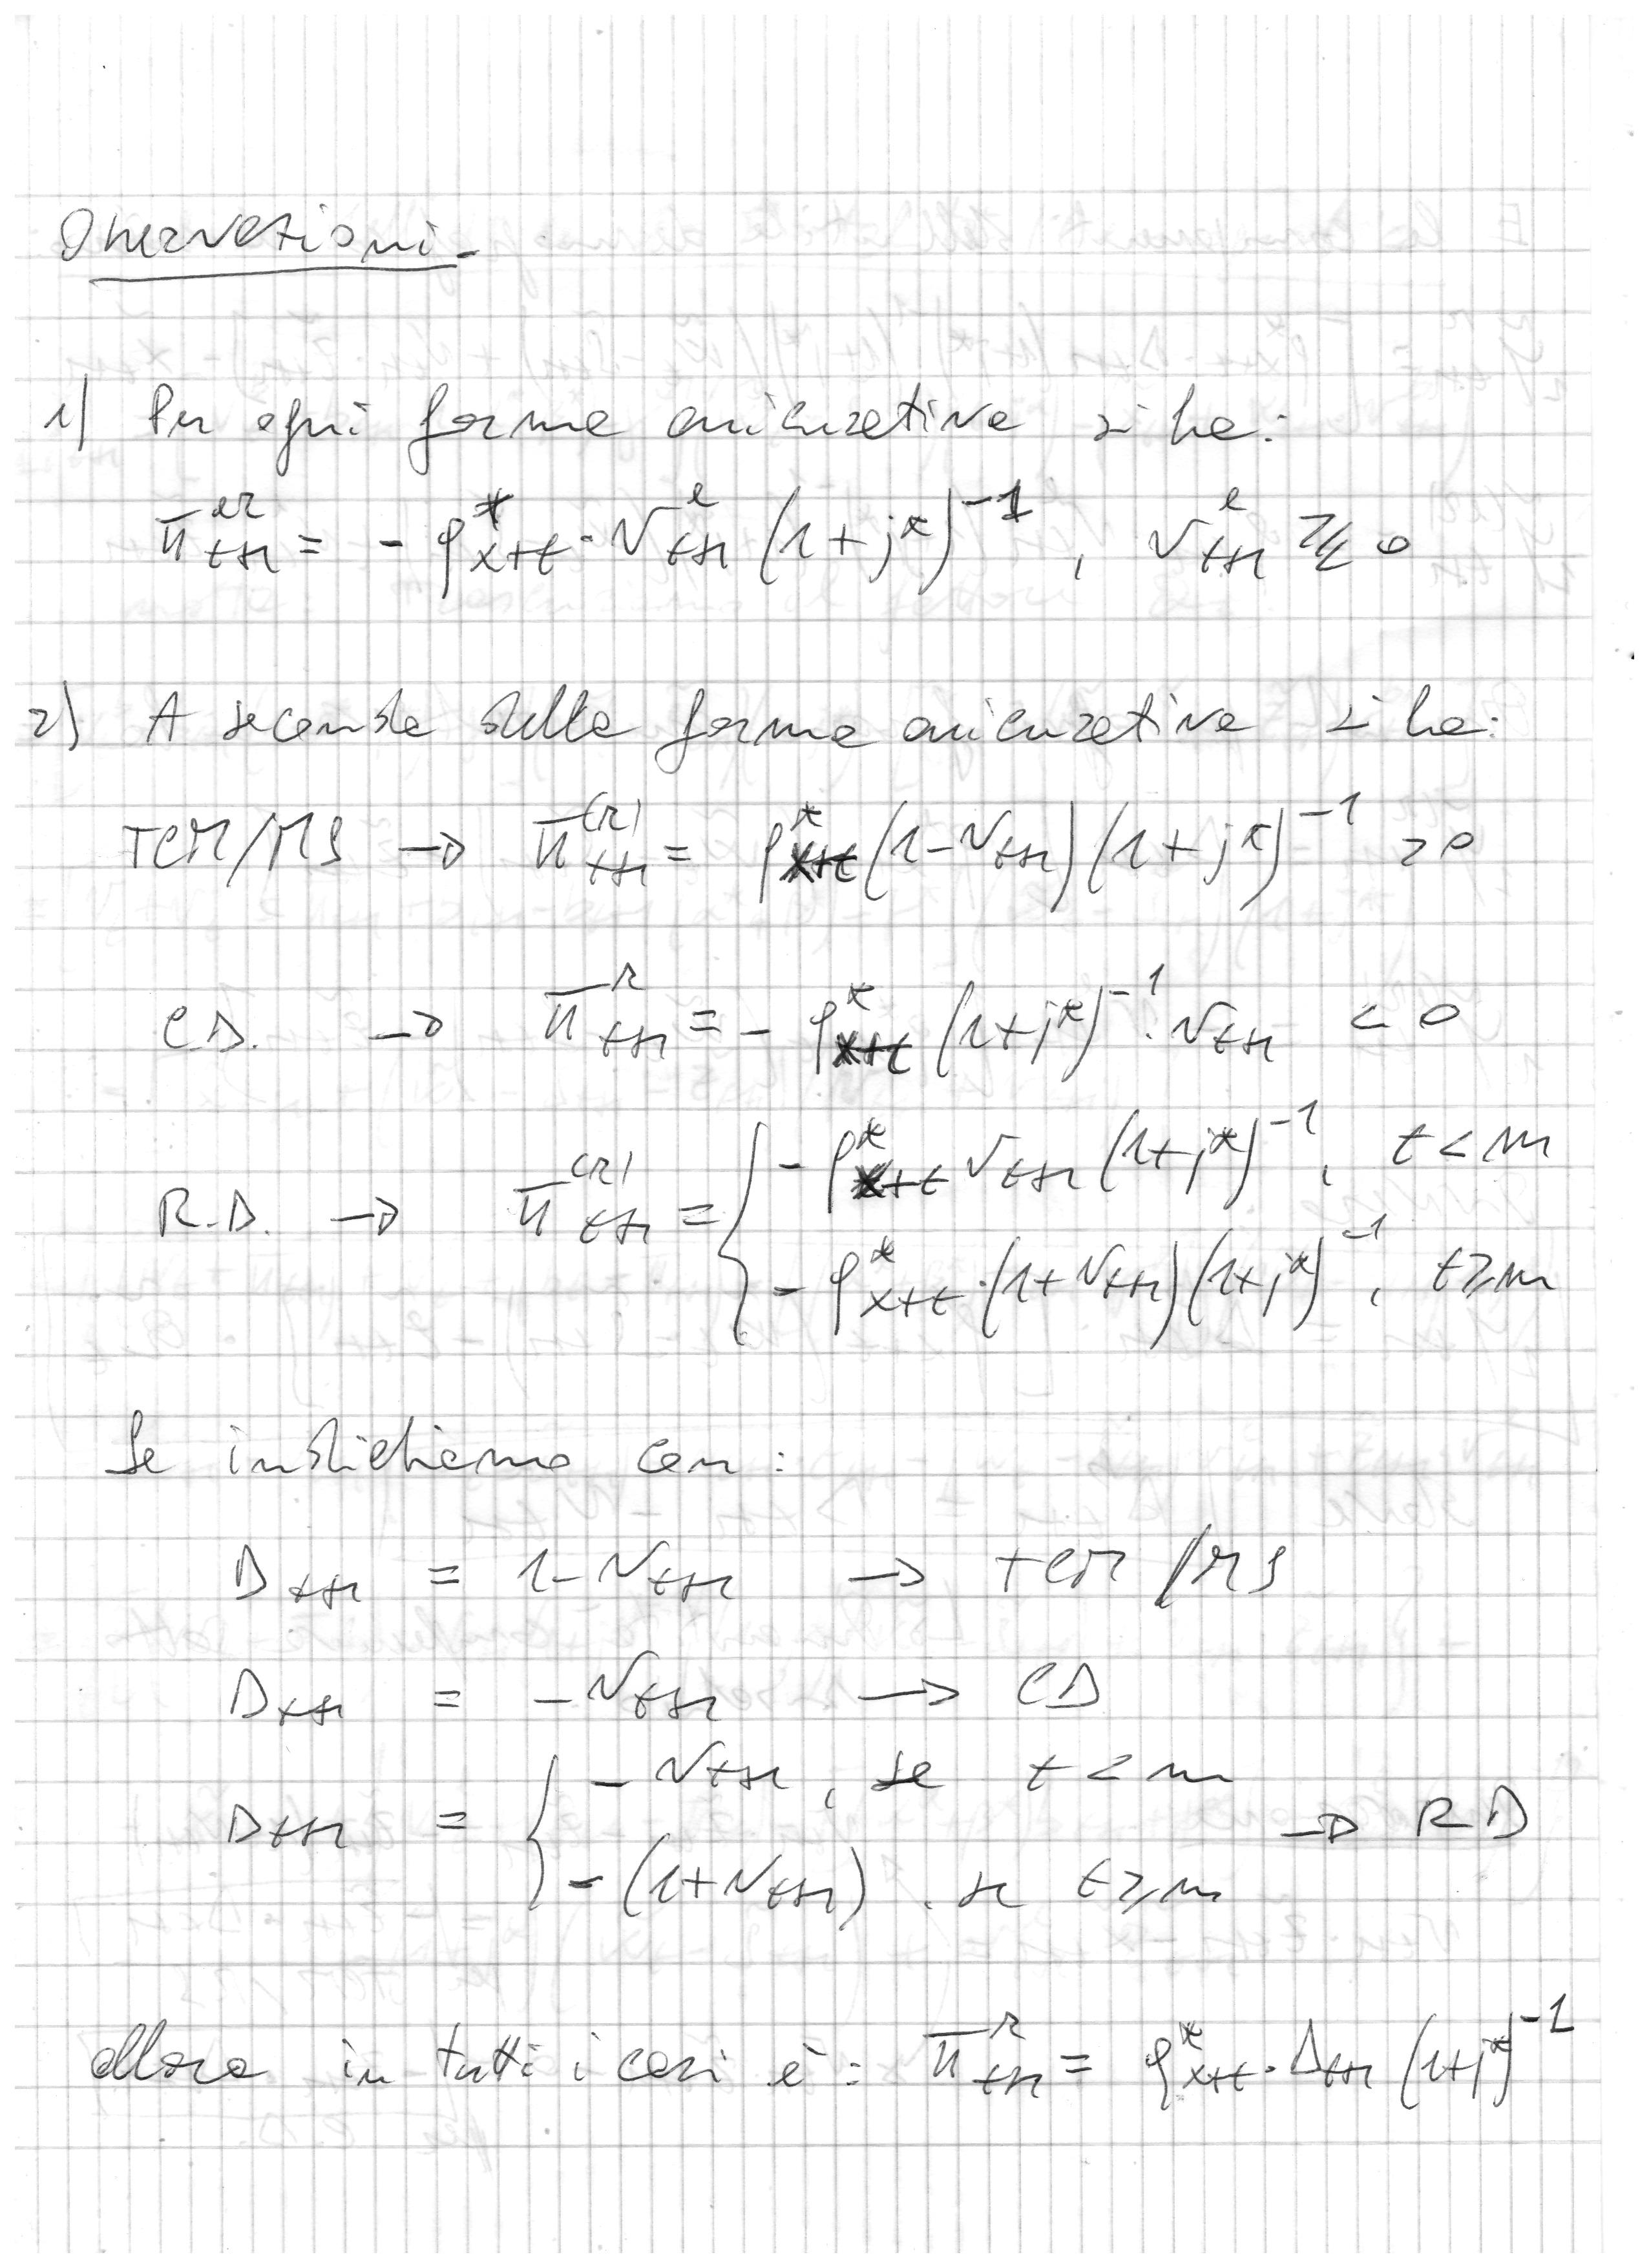 Osservazioni -
1) Per ogni forma assicurativa si ha:
π^{er}_{t+1} = - q^*_{x+t} · V^e_{t+1} (1+j^*)^{-1} , V^e_{t+1} ⋛ 0
2) A seconda della forma assicurativa si ha:
TCM/MS → π^{(r)}_{t+1} = q^*_{x+t} (1-V_{t+1}) (1+j^*)^{-1} > 0
C.D. → π^r_{t+1} = - q^*_{x+t} (1+j^*)^{-1} · V_{t+1} < 0
R.D. → π^{(r)}_{t+1} = { - q^*_{x+t} V_{t+1} (1+j^*)^{-1} , t < m
- q^*_{x+t} · (1+V_{t+1}) (1+j^*)^{-1} , t ≥ m
Se indichiamo con:
Δ_{t+1} = 1-V_{t+1} → TCM/MS
Δ_{t+1} = -V_{t+1} → CD
Δ_{t+1} = { -V_{t+1} , se t < m
-(1+V_{t+1}) , se t ≥ m → RD
allora in tutti i casi è : π^r_{t+1} = q^*_{x+t} · Δ_{t+1} (1+j^*)^{-1}